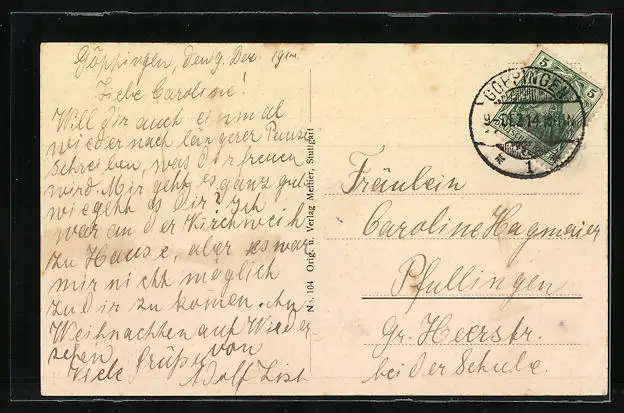 Göppingen, den 9. Dez. 1914
Liebe Caroline!
Will dir auch einmal
wieder nach längerer Pause
schreiben, was dir freuen
wird. Mir geht es ganz gut
wie geht es dir? Ich
war an der Kirchweih
zu Hause, aber es war
mir nicht möglich
zu dir zu kommen. An
Weihnachten auf Wieder
sehen
Viele Grüße von
Adolf List
No. 104 Orig. u. Verlag Metler, Stuttgart
5 5
GÖPPINGEN
9 DEZ 14
* 1
Fräulein
Caroline Hagmeier
Pfullingen
Gr. Heerstr.
bei der Schule.